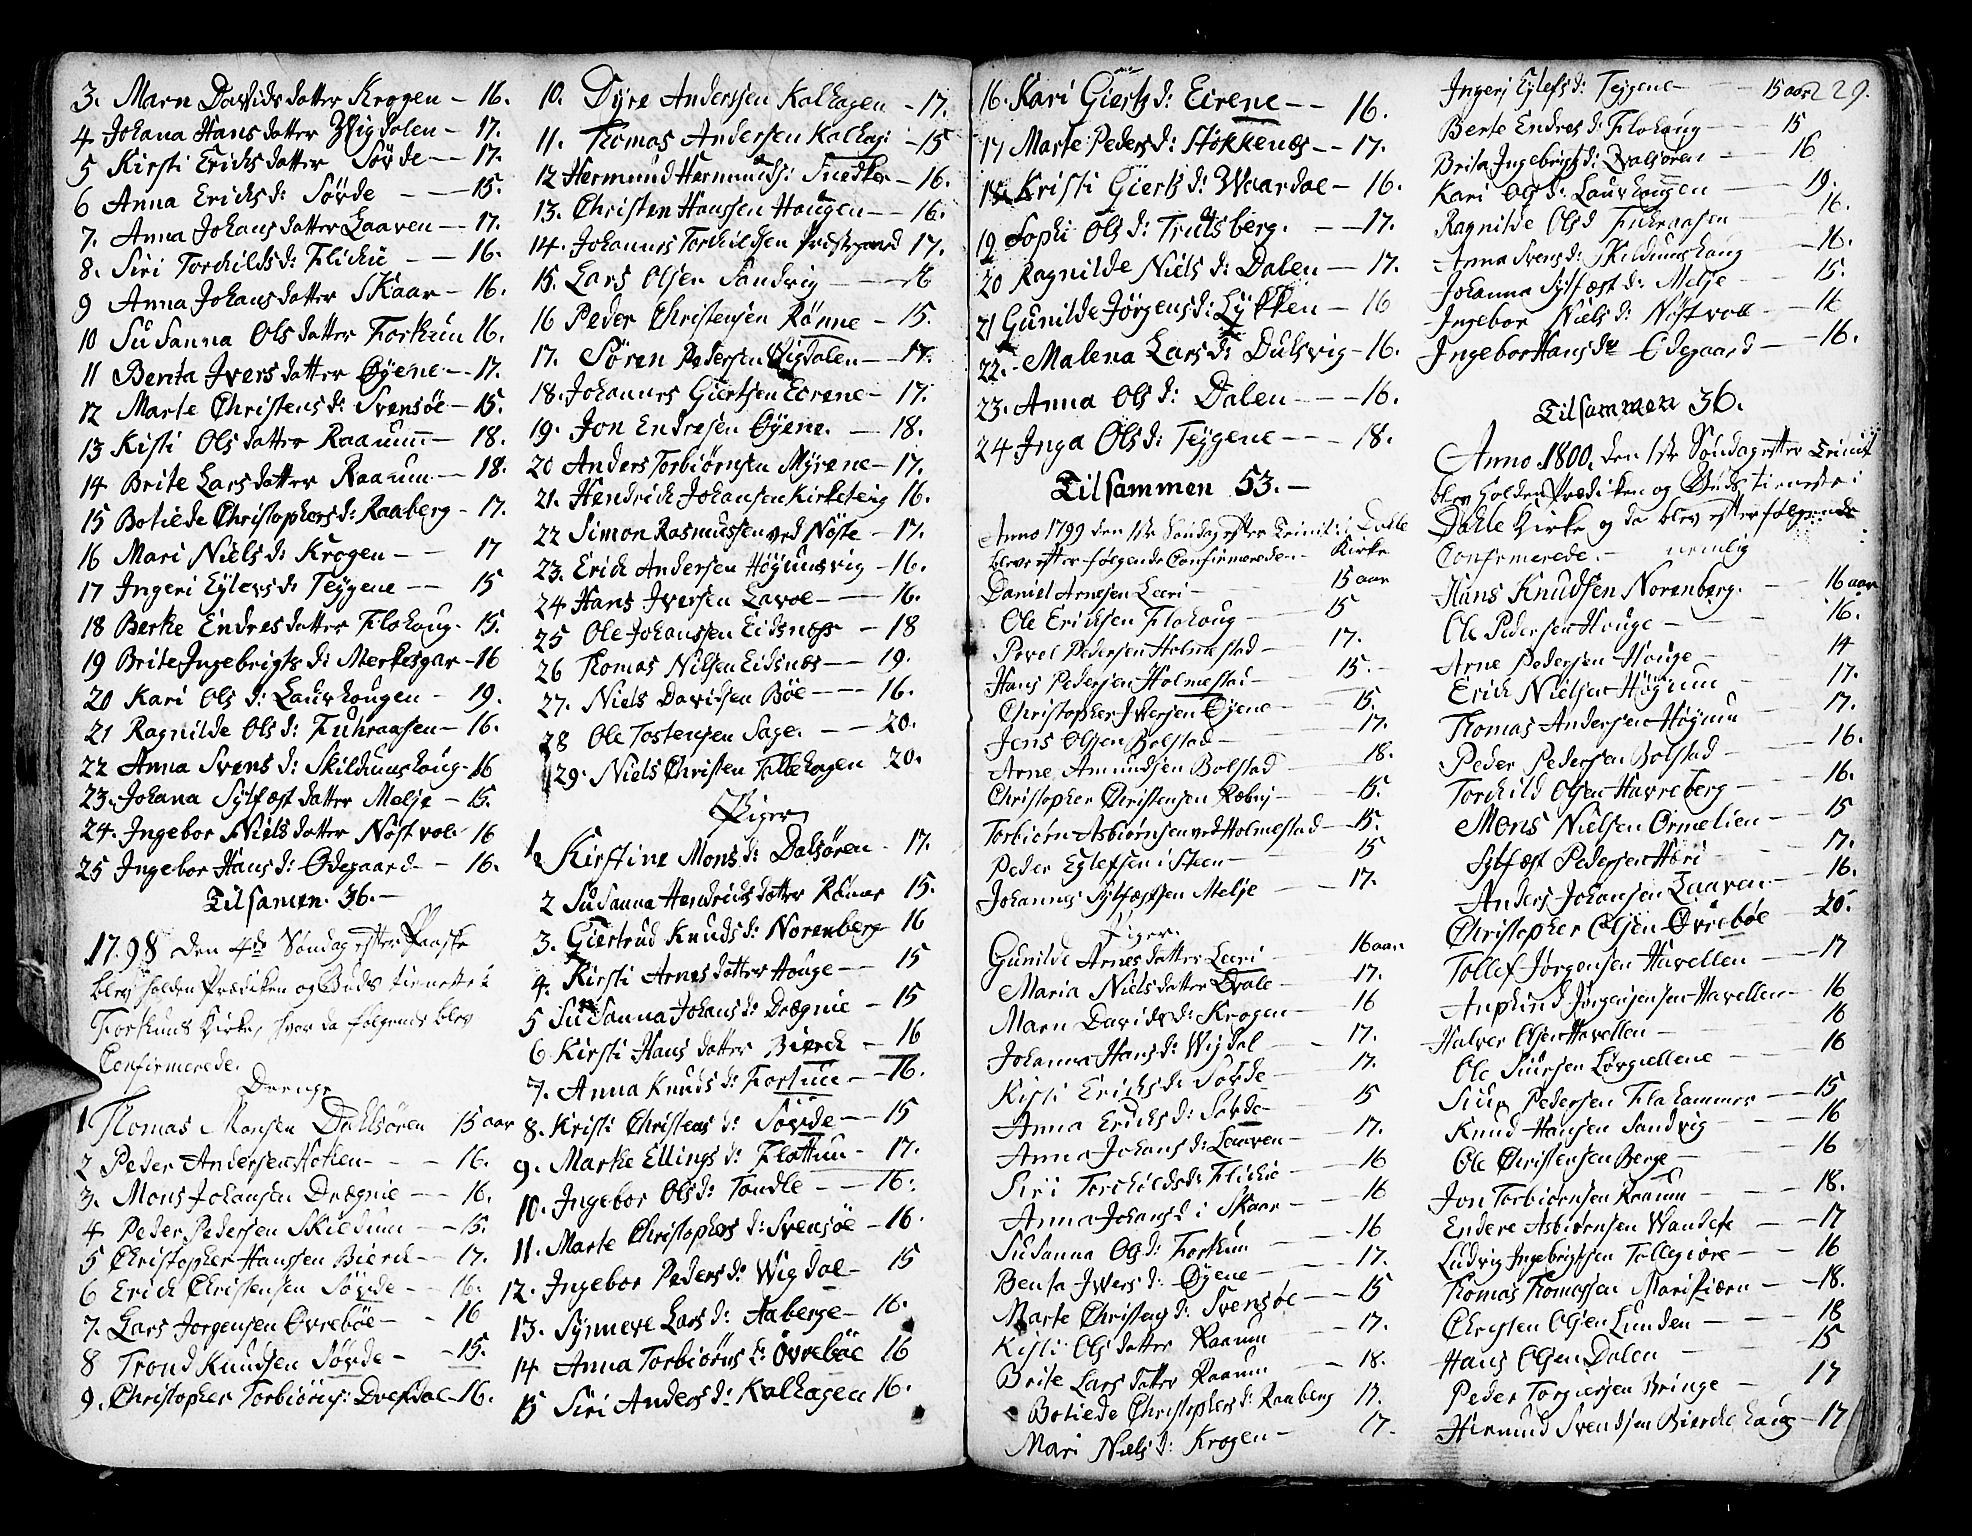 3. Marn Davids datter Krogen - 16.
4 Johana Hans datter Wigdalen - 17.
5 Kirsti Erichs datter Sövde - 17.
6 Anna Erichs d: Sövde - 15.
7. Anna Johans datter Laaven - 17.
8. Siri Torchilds d: Flichie - 16.
9 Anna Johans datter Skaar - 16.
10 Susanna Ols datter Forthun 16.
11 Benta Ivers datter Øyene - 17.
12 Marte Christens d: Svensöe - 15.
13 Kisti Ols datter Raaum - 18.
14 Brite Lars datter Raaum - 18.
15 Botilde Christophers d: Raaberg - 17.
16 Mari Niels d: Krogen - 17
17 Ingeri Eylevs d: Teygene - 15
18 Berte Endres datter Flohoug - 15.
19 Brite Ingebrigts d: Merkesgar - 16
20 Kari Ols d: Laurhougen - 19.
21 Ragnilde Ols d: Fuhraasen - 16.
22 Anna Svens d: Skildunshoug - 16
23. Johana Sylfæst datter Melje - 15.
24. Ingebor Niels datter Nöstvole 16
25 Ingebor Hans d: Ødegaard - 16.
Tilsamen. 36. -
1798 den 4de Søndag efter Paaske
blev holden Prædiken og Guds tieneste i
Forthuns Kirke, hvor da følgende blev
Confirmerede.
Drenge
1 Thomas Monsen Dahlsören 15 aar
2 Peder Andersen Hotien - 16.
3. Mons Johansen Drægnie - 16.
4 Peder Pedersen Skieldum - 15.
5 Christopher Hanssen Bierch - 17.
6 Erich Christensen Sövde - 16.
7. Lars Jorgensen Øvrebøe - 16
8 Trond Knudsen Sövde - 15.
9. Christopher Torbiörns: Drefdal - 16.
10. Dyre Anderssen Kalhagen - 17.
11. Thomas Andersen Kalhag: - 15
12 Hermund Hermunds: Snedker - 16.
13. Christen Hanssen Hougen - 16.
14. Johannes Torchildsen Præstegaard 17.
15. Lars Olsen Sandvig - 16
16 Peder Christensen Rönne - 15.
17. Sören Pedersen Vigdalen - 17.
18. Johannes Giertsen Eirene - 17.
19. Jon Endresen Øyene. - 18.
20 Anders Torbiörnsen Myrene - 17.
21. Hendrich Johansen Kirketeig 16.
22 Simon Rasmussen ved Nöste - 17.
23. Erich Andersen Högumsvig - 16.
24 Hans Iversen Lavoe - 16.
25 Ole Johanssen Eidsnæss - 18
26 Thomas Nilsen Eidsnæs - 19.
27. Niels Davidsen Böe - 16.
28 Ole Tostensen Sage. - 20.
29. Niels Christen Tollehogen 20.
Piger
1 Kirstine Mons d: Dalsören - 17.
2 Susanna Hendrichs datter Römer 15.
3. Giertrud Knuds d: Norenberg 16
4. Kirsti Arnes datter Houge - 15
5 Susanna Johans d: Drægnie - 15
6 Kirsti Hans datter Bierch - 16
7. Anna Knuds d: Fortuee - 16.
8. Kristi Christens d: Sövde - 15
9. Marthe Ellings d: Flattun - 17.
10. Ingebor Ols d: Tandle - 16.
11. Marte Christophers d: Svensöe - 16.
12. Ingebor Peders d: Wigdal - 15
13. Synneve Lars d: Aaberge - 16.
14 Anna Torbiörns d: Övreböe 16
15 Siri Anders d: Kalhagen 16.
16. Kari Gierts d: Eirene - 16.
17 Marte Peders d: Stökkenæs - 17.
18 Kristi Gierts d: Waardal - 16.
19 Sophi Ols d: Trulsberg. - 17.
20 Ragnilde Niels d: Dalen - 17.
21 Gunilde Jörgens d: Lykken - 16
22. Malena Lars d: Dulsvig - 16.
23. Anna Ols d: Dalen - 16.
24 Inga Ols d: Teygene - 18.
Tilsammen 53. -
Anno 1799 den 1ste Søndag efter Trinit: i Dahle
blev efter følgende Confirmerede - Kirke
Daniel Arnesen Leeri - 15 aar
Ole Erichsen Flohoug - 15
Povel Pedersen Holmestad - 17.
Hans Pedersen Holmestad - 15.
Christopher Iversen Öyene - 15.
Jens Olsen Bolstad - 17.
Arne Amundsen Bolstad - 18.
Christopher Christensen Ræbej - 15.
Torbiörn Asbiörnsen ved Holmestad - 15.
Peder Eylefsen i Steen - 15
Johannes Sylfæstsen Melje - 17.
Piger.
Gunilde Arnes datter Leeri - 16 aar
Maria Niels datter Dvale - 17.
Marn Davids d: Krogen - 16
Johanna Hans d: Wigdal - 17.
Kisti Erichs d: Sövde - 17.
Anna Erichs d: Sövde - 15
Anna Johans d: Laaven - 17.
Siri Torchilds d: Flichie - 16
Anna Johans d: Skaar - 16
Susanna Ols d: Forthun - 16
Benta Ivers d: Öyene - 17.
Marte Christens d: Svensöe - 15
Kisti Ols datter Raaum - 17.
Brite Lars datter Raaum - 18.
Botilde Christophers d: Raaberg 17.
Mari Niels d: Krogen - 17.
229.
Ingerj Eylefs d: Teygene - 15 aar
Berte Endres d: Flohoug - 15
Brita Ingebrigts d: Dalsören - 16
Kari Ols d: Laurhougen - 19.
Ragnilde Ols d Fuhraasen - 16.
Anna Svens d: Skildunshoug - 16.
Johanna Sylfæst d: Melje - 15.
Ingebor Niels d: Nöstvolle - 16
Ingebor Hans dr Ödegaard - 16.
Tilsammen 36.
Anno 1800, den 1ste Søndag efter Trinit
blev holden Prædiken og Guds tieneste i
Dahle Kirke og da blev efter følgende
Confirmerede. - nemlig
Hans Knudsen Norenberg. - 16 aar
Ole Pedersen Houge - 16.
Arne Pedersen Houge - 14
Erich Nielsen Högum - 17.
Thomas Andersen Högum - 17.
Peder Pedersen Bolstad - 16.
Torchild Olsen Havreberg - 16.
Mons Nielsen Ormelien - 15
Sylfæst Pedersen Höri - 17.
Anders Johansen Laaven - 16.
Christopher Olsen Øvreböe - 20.
Tollef Jørgensen Havellen - 17
Jørgensen Havellen - 16
Halver Olsen Havellen - 16
Ole Siursen Lörgiellene - 16
Siur Pedersen Flahammer - 15
Knud Hansen Sandvig - 16
Ole Christensen Berge - 16
Jon Torbiörnsen Raaum - 18.
Endre Asbiörnsen Wandeft - 17
Ludvig Ingebrigtsen Tollegiöre - 16
Thomas Thomassen Marifiæren - 18.
Christen Olsen Lunden - 18
Hans Olsen Dalen - 15
Peder Torgiersen Bringe - 17
Hermund Svendsen Bierchehaug - 17